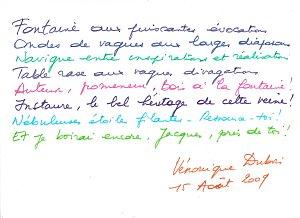 Fontaine aux puissantes évocations
Ondes de vagues aux larges diapasons
Navigue entre inspirations et réalisation
Table rase aux vagues divagations
Auteur, promeneur, bois à la fontaine!
Instaure, le bel héritage de cette veine!
Nébuleuses étoile filantes - Retrouve-toi!
Et je boirai encore, Jacques, près de toi!
Véronique Dubois
15 Août 2009